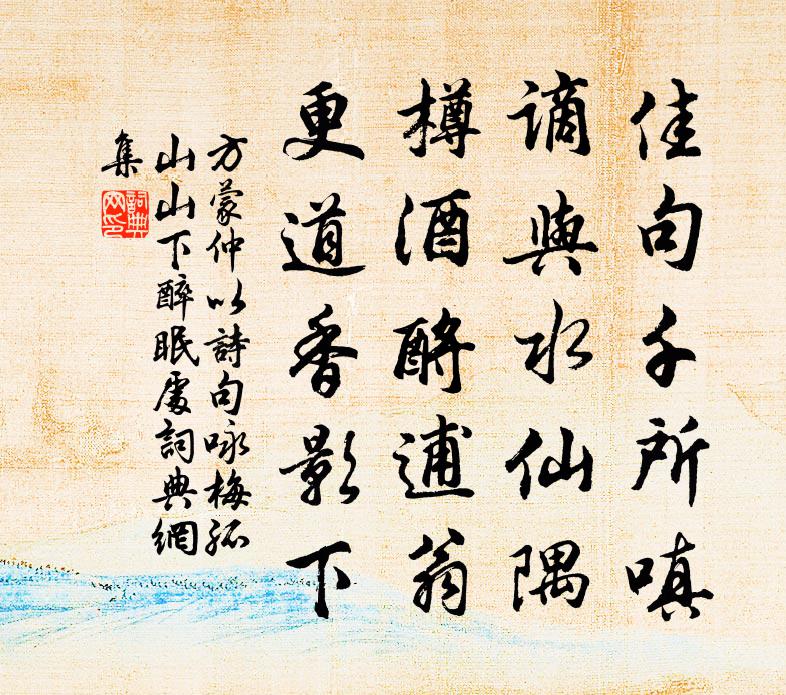 佳句千所嗔
謫與水仙隅
樽酒酹逋翁
更道香影下
方蒙仲以詩句咏梅孤
山山下醉眠處詞典網
集
詞典
网印